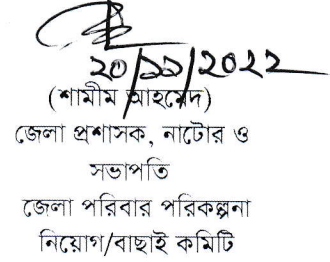 ২০/১১/২০২২
(শামীম আহমেদ)
জেলা প্রশাসক, নাটোর ও
সভাপতি
জেলা পরিবার পরিকল্পনা
নিয়োগ/বাছাই কমিটি